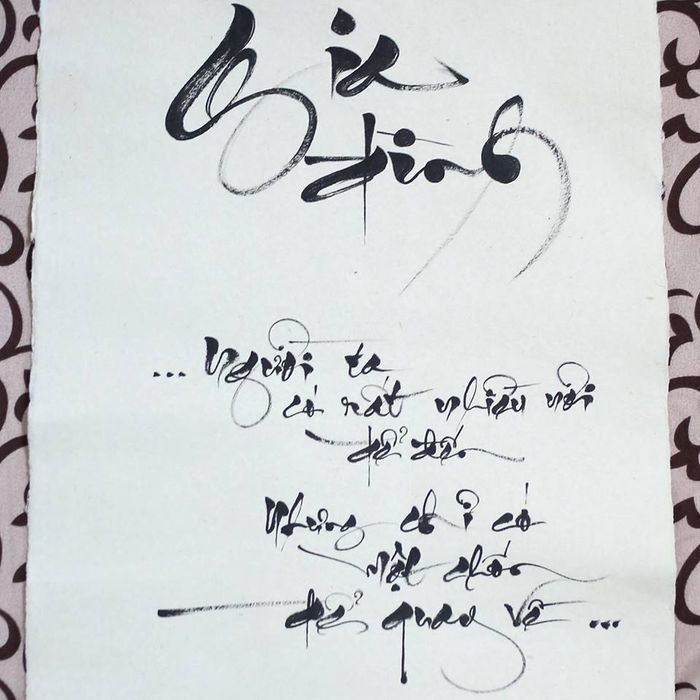 Gia
đình
... Người ta
có rất nhiều nơi
để đến
Nhưng chỉ có
một chốn
để quay về ...